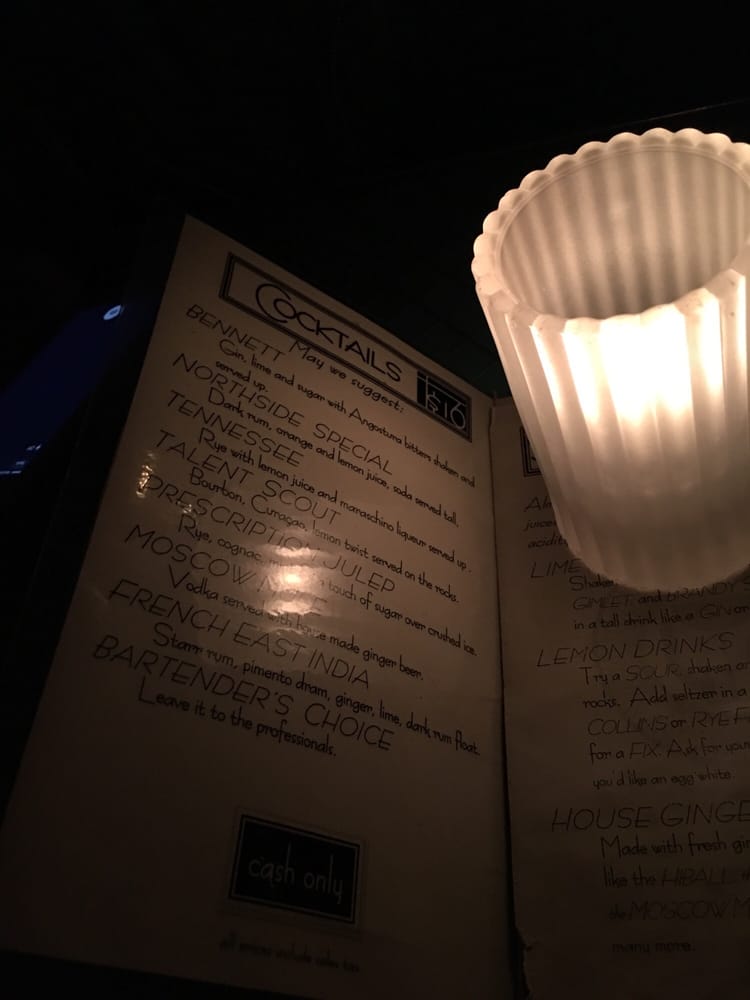 COCKTAILS
$16
May we suggest:
BENNETT
Gin, lime and sugar with Angostura bitters shaken and
served up.
NORTHSIDE SPECIAL
Dark rum, orange and lemon juice, soda served tall.
TENNESSEE
Rye with lemon juice and maraschino liqueur served up.
TALENT SCOUT
Bourbon, Curaçao, lemon twist served on the rocks.
PRESCRIPTION JULEP
Rye, cognac, touch of sugar over crushed ice.
MOSCOW
Vodka served with house made ginger beer.
FRENCH EAST INDIA
Starr rum, pimento dram, ginger, lime, dark rum float.
BARTENDER'S CHOICE
Leave it to the professionals.
cash only
all prices include sales tax
LIME
Shaken
GIMLET, and BRANDY
in a tall drink like a GIN
LEMON DRINKS
Try a SOUR, shaken
rocks. Add seltzer in a
COLLINS or RYE
for a FIX. Ask for your
you'd like an egg white.
HOUSE GINGE
Made with fresh
like the HIBALL
the MOSCOW M
many more.